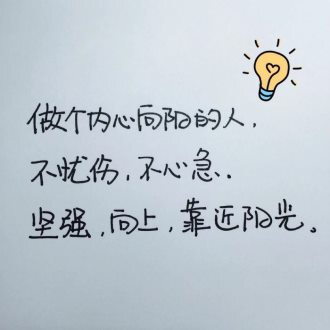 做个内心向阳的人，
不忧伤，不心急．
坚强，向上，靠近阳光。